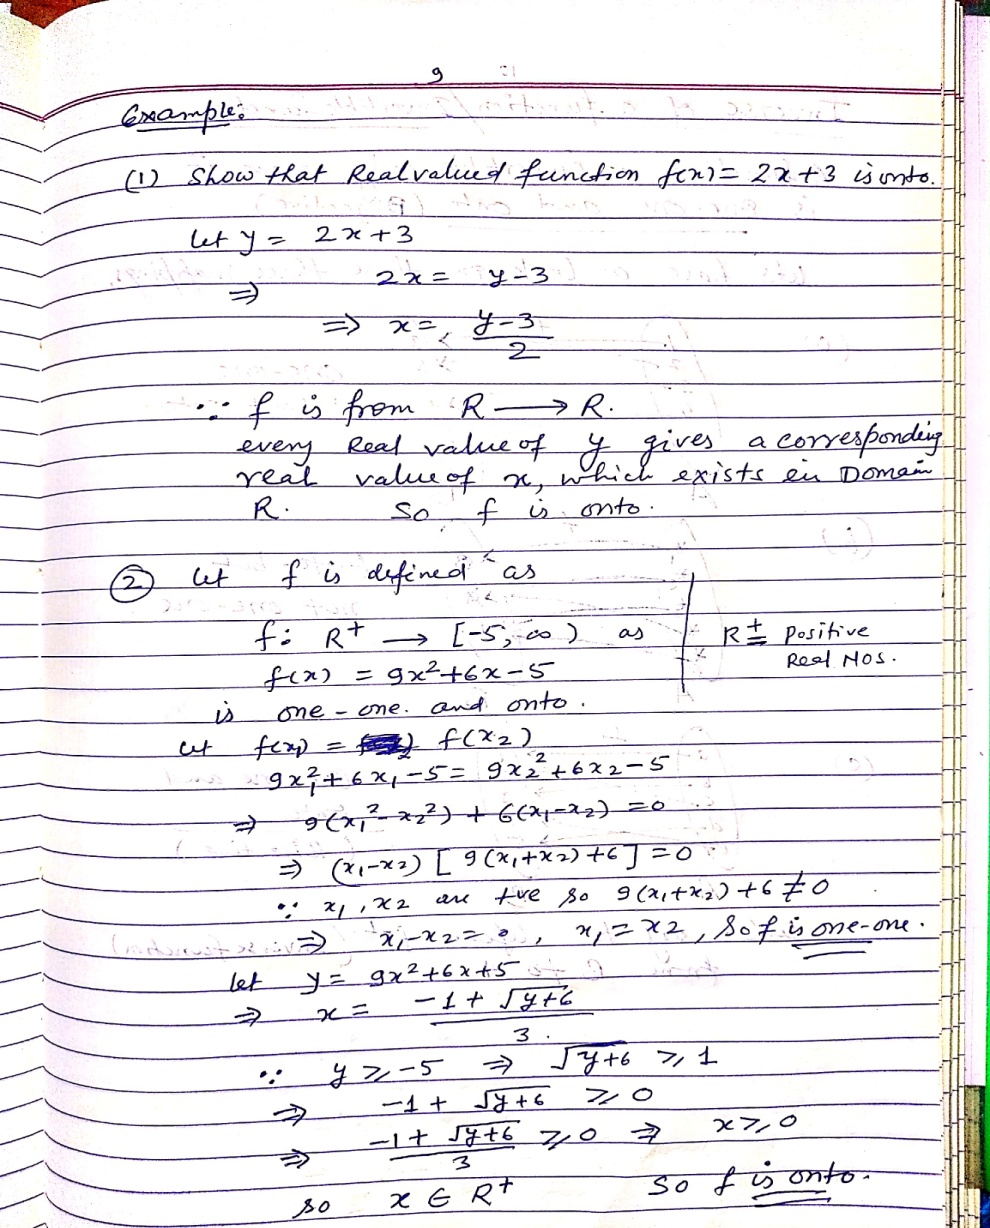 9
Example:
(1) Show that Real valued function f(x) = 2x+3 is onto.
Let y = 2x+3
⇒ 2x = y-3
⇒ x = y-3/2
∵ f is from R ⟶ R.
every Real value of y gives a corresponding
real value of x, which exists in Domain
R. So f is onto.
② Let f is defined as
f: R+ ⟶ [-5, ∞) as
f(x) = 9x²+6x-5
R+ = Positive
Real Nos.
is one-one and onto.
Let f(x₁) = f(x₂)
9x₁²+6x₁-5 = 9x₂²+6x₂-5
⇒ 9(x₁²-x₂²) + 6(x₁-x₂) = 0
⇒ (x₁-x₂) [9(x₁+x₂)+6] = 0
∵ x₁, x₂ are +ve so 9(x₁+x₂)+6 ≠ 0
⇒ x₁-x₂ = 0, x₁ = x₂, So f is one-one.
Let y = 9x²+6x+5
⇒ x = -1+√y+6/3.
∵ y ≥ -5 ⇒ √y+6 ≥ 1
⇒ -1+ √y+6 ≥ 0
⇒ -1+√y+6/3 ≥ 0 ⇒ x ≥ 0
so x ∈ R+ So f is onto.